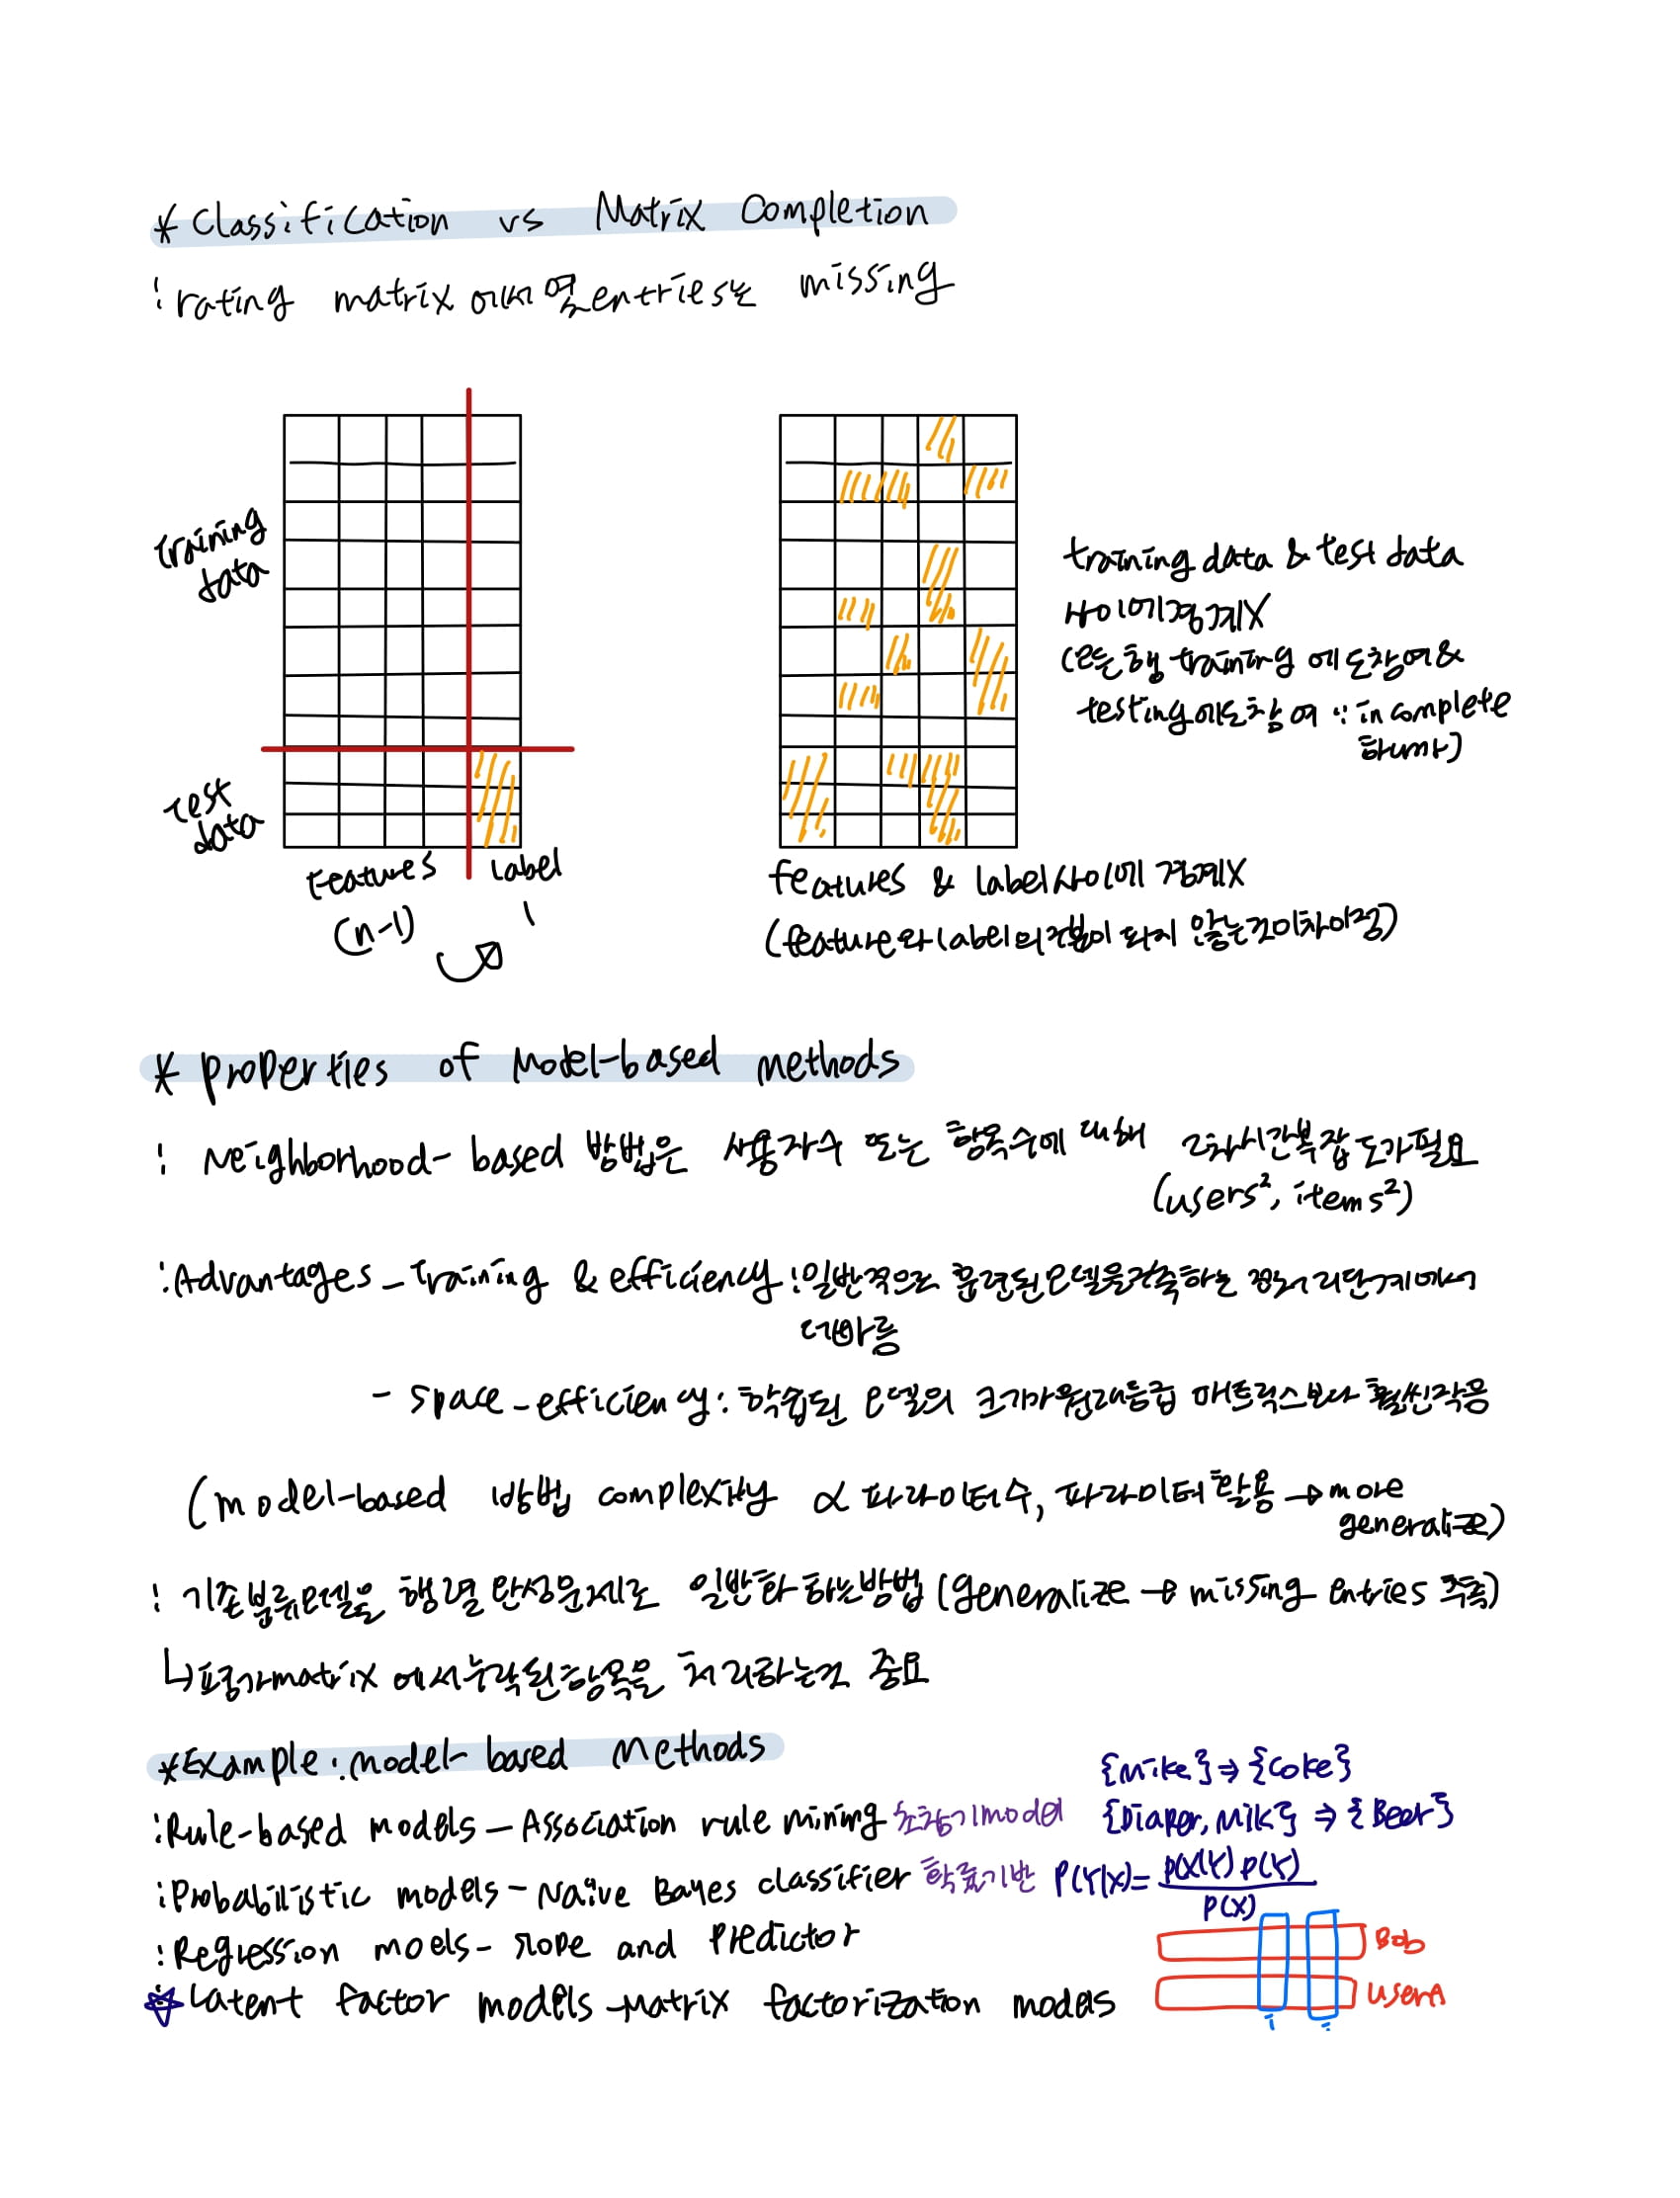 * Classification vs Matrix Completion
: rating matrix에서 열entries는 missing
training data
test data
features (n-1)
label 1
training data & test data
사이에경계X
(모든행 training에도참여&
testing에도참여 ∵ incomplete
하므로)
features & label사이에 경계X
(feature와 label의 구분이 되지 않는것이차이점)
* Properties of Model-based methods
: Neighborhood-based 방법은 사용자수 또는 항목수에 대해 2차시간복잡도가필요
(users², items²)
: Advantages - Training & efficiency : 일반적으로 훈련된모델을구축하는 전처리단계에서
더빠름
- space-efficiency : 학습된 모델의 크기가원래등급 매트릭스보다 훨씬작음
(model-based 방법 complexity ∝ 파라미터수, 파라미터활용 → more
generalize)
: 기존분류모델을 행렬완성문제로 일반화하는방법 (generalize → missing entries 추측)
↳평가matrix에서누락된항목을 처리하는것 중요
*Example : model-based Methods
{Mike} ⇒ {Coke}
:Rule-based models - Association rule mining 초창기model {Diaper, Milk} ⇒ {Beer}
:Probabilistic models - Naïve Bayes classifier 확률기반 P(Y|X) = P(X|Y) P(Y) / P(X)
:Regression moels - slope and Predictor
Bob
:Latent factor models - Matrix factorization models
userA
i